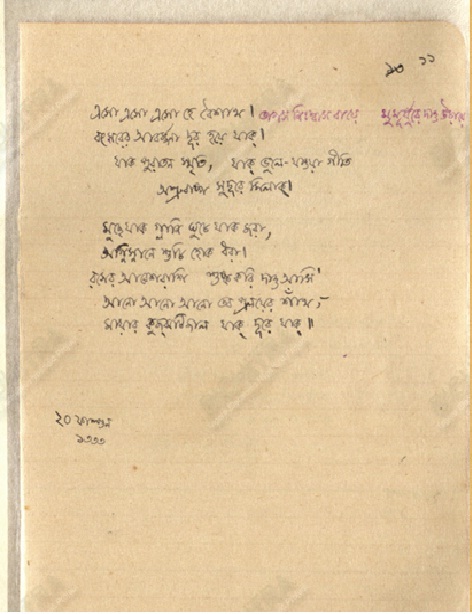 ১০ ১১
এসো এসো এসো হে বৈশাখ। তাপসনিঃশ্বাসবায়ে মুমূর্ষুরে দাও উড়ায়ে
বৎসরের আবর্জ্জনা দূর হয়ে যাক্।
যাক্ পুরাতন স্মৃতি, যাক্ ভুলে-যাওয়া গীতি
অশ্রুবাষ্প সুদূরে মিলাক্।
মুছে যাক্ গ্লানি ঘুচে যাক্ জরা,
অগ্নিস্নানে শুচি হোক ধরা।
রসের আবেশরাশি শুষ্ক করি দাও আসি
আনো আনো আনো তব প্রলয়ের শাঁখ,-
মায়ার কুজ্ঝটিজাল যাক্ দূরে যাক্॥
২০ ফাল্গুন
১৩৩৩